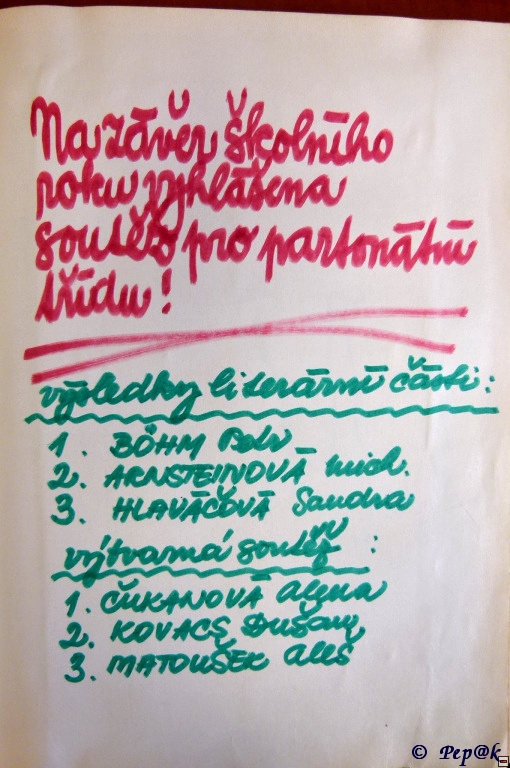 Na závěr školního
roku vyhlášena
soutěž pro partonátní
třídu!
výsledky literární části:
1. BÖHM Petr
2. ARNSTEINOVÁ Mich.
3. HLAVÁČOVÁ Sandra
výtvarná soutěž :
1. ČUKANOVÁ Alena
2. KOVACS Dušan
3. MATOUŠEK Aleš
© Pep@k